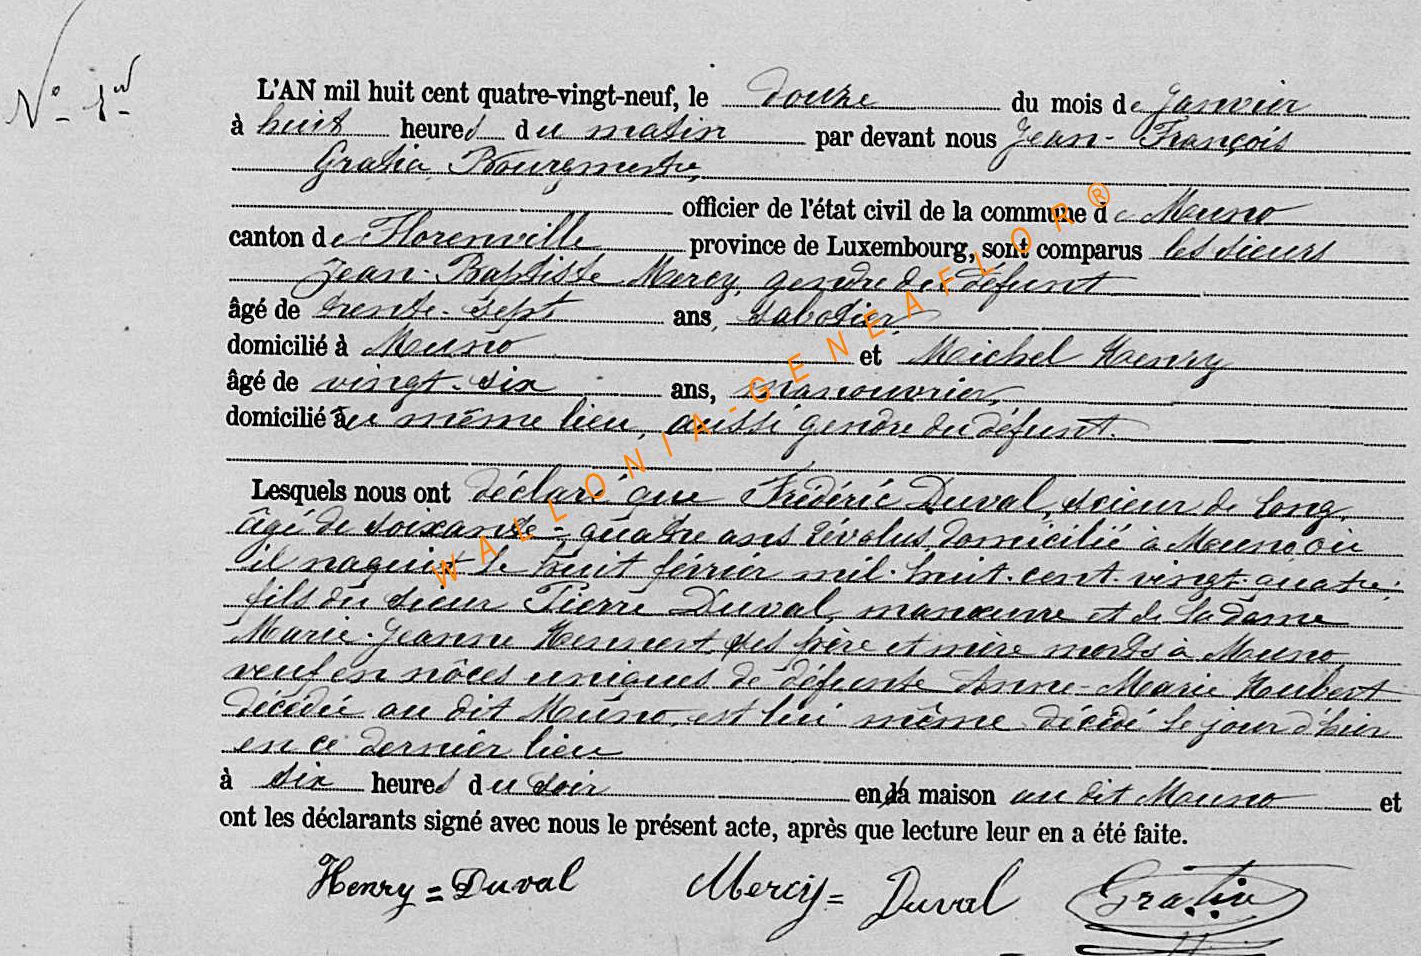 N° 1er
L'AN mil huit cent quatre-vingt-neuf, le douze du mois de Janvier
à huit heures du matin par devant nous Jean-François
Gratia, Bourgmestre,
officier de l'état civil de la commune de Muno
canton de Florenville province de Luxembourg, sont comparus les sieurs
Jean-Baptiste Mercy, gendre du défunt
âgé de trente-sept ans, sabotier,
domicilié à Muno et Michel Henry
âgé de vingt-six ans, manouvrier,
domicilié au même lieu, aussi gendre du défunt.
Lesquels nous ont déclaré que Frédéric Duval, scieur de long,
âgé de soixante-quatre ans révolus, domicilié à Muno où
il naquit le huit février mil-huit-cent-vingt-quatre,
fils du sieur Pierre Duval, manœuvre et de la dame
Marie-Jeanne Hennert, ses père et mère morts à Muno,
veuf en nôces uniques de défunte Anne-Marie Hubert
décédée au dit Muno, est lui même décédé le jour d'hier
en ce dernier lieu
à six heures du soir en la maison au dit Muno et
ont les déclarants signé avec nous le présent acte, après que lecture leur en a été faite.
Henry=Duval Mercy=Duval Gratia
WALLONIA-GENEAFLOR®